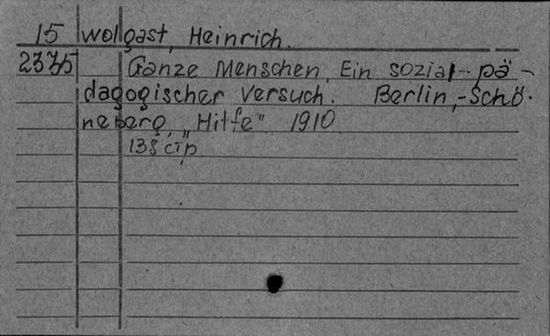 15 wolgast, Heinrich.
2335 Ganze Menschen. Ein sozial-pä-
dagogischer Versuch. Berlin,-Schö-
neberg, „Hilfe" 1910
138 стр